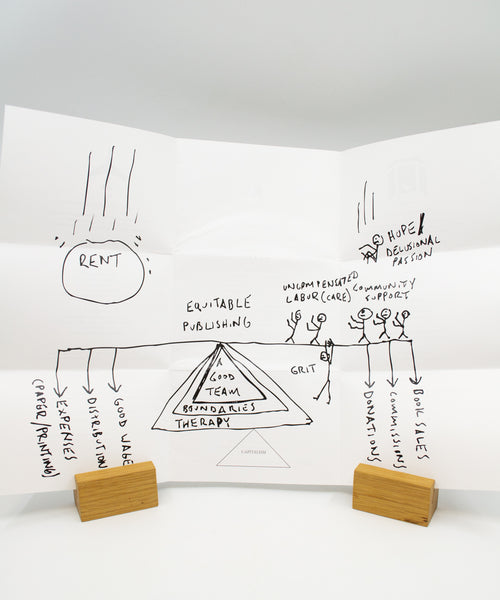 RENT
HOPE/
DELUSIONAL
PASSION
UNCOMPENSATED
LABOR (CARE)
COMMUNITY
SUPPORT
EQUITABLE
PUBLISHING
GRIT
A
GOOD
TEAM
BOUNDARIES
THERAPY
CAPITALISM
(PAPER/PRINTING)
EXPENSES
DISTRIBUTION
GOOD WAGE
DONATIONS
COMMISSIONS
BOOK SALES